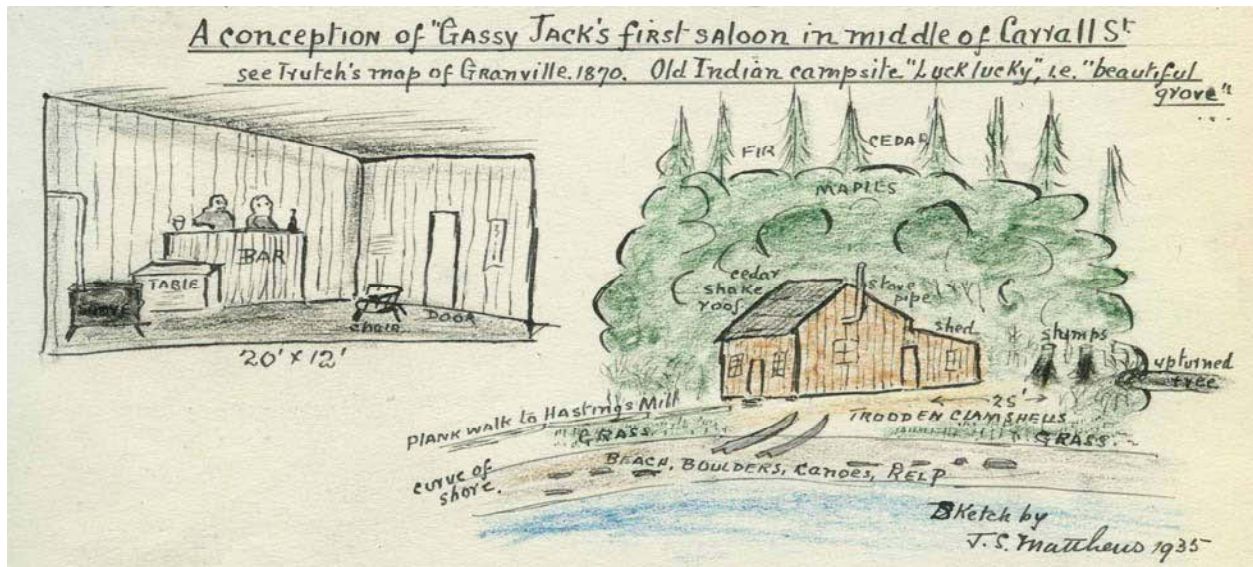 A conception of "Gassy Jack's first saloon in middle of Carrall St
see Trutch's map of Granville. 1870. Old Indian campsite "Lucklucky", i.e. "beautiful
grove"
FIR
CEDAR
MAPLES
BAR
TABLE
STOVE
CHAIR
DOOR
20' x 12'
cedar
shake
roof
stove
pipe
shed
stumps
upturned
tree
25'
TRODDEN CLAMSHELLS
PLANK WALK to HASTINGS MILL
GRASS
GRASS
curve of
shore.
BEACH, BOULDERS, CANOES, KELP
Sketch by
J. S. Matthews 1935